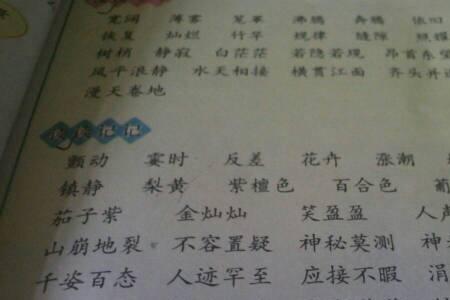 宽阔 薄雾 笼罩 沸腾 奔腾 依旧
恢复 灿烂 竹竿 规律 缝隙 照耀
树梢 静寂 白茫茫 若隐若现 昂首东望
风平浪静 水天相接 横贯江面 齐头并进
漫天卷地
颤动 霎时 反差 花卉 涨潮
镇静 梨黄 紫檀色 百合色 葡
茄子紫 金灿灿 笑盈盈 人声
山崩地裂 不容置疑 神秘莫测 神
千姿百态 人迹罕至 应接不暇 涓